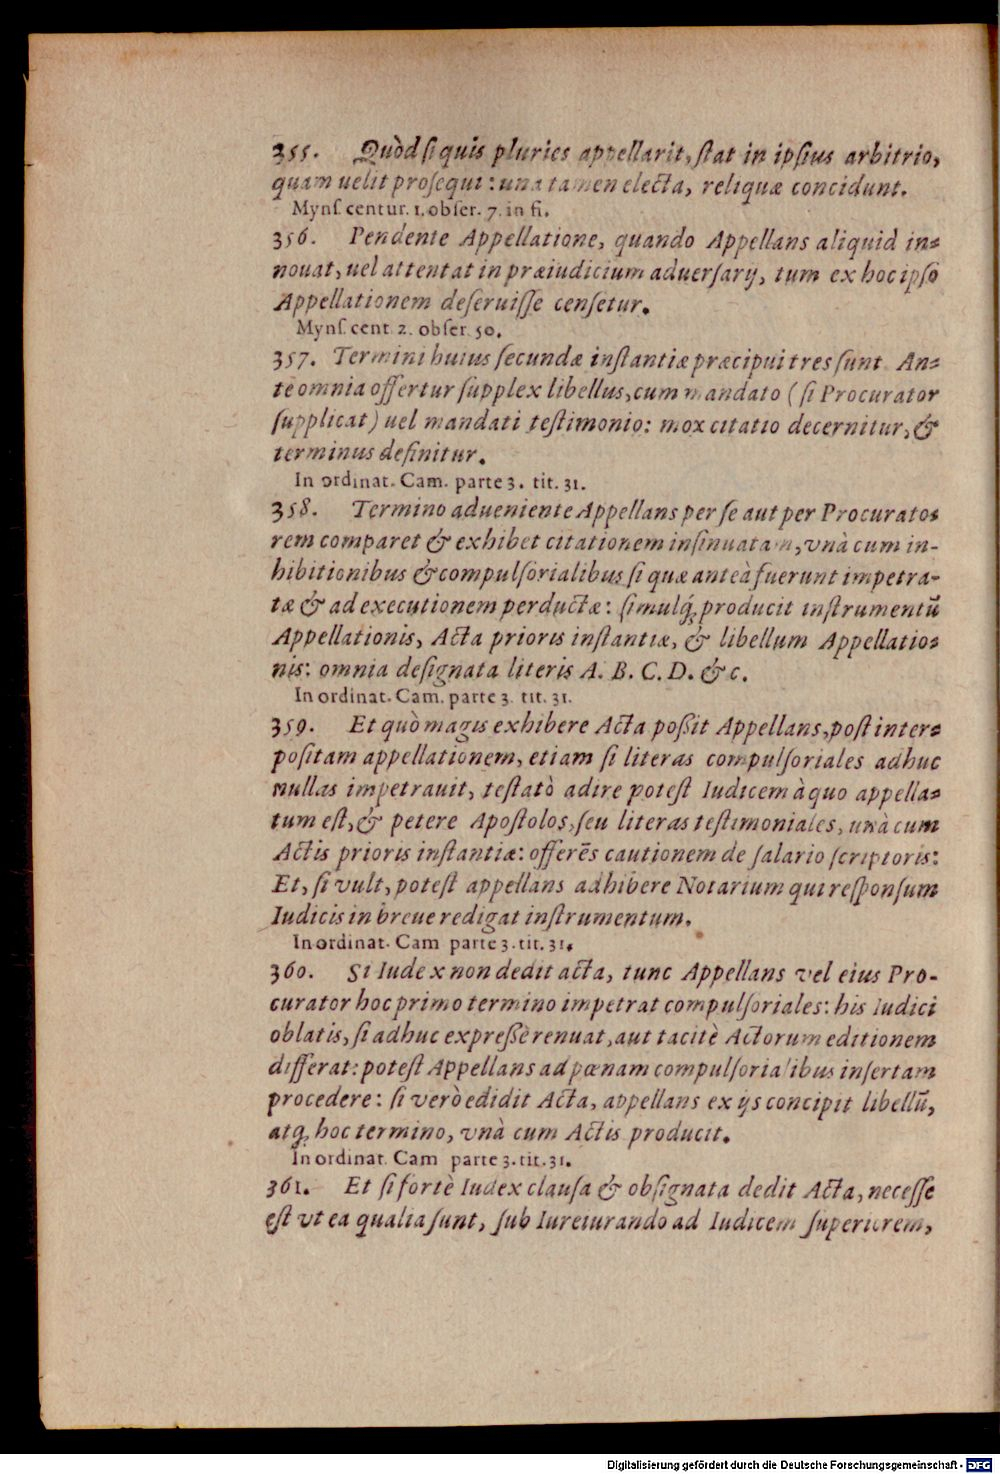 355. Quòd si quis pluries appellarit, stat in ipsius arbitrio,
quam uelit prosequi: una tamen electa, reliquæ concidunt.
Myns. centur. 1. obser. 7. in fi.
356. Pendente Appellatione, quando Appellans aliquid in=
nouat, uel attentat in præiudicium aduersarij, tum ex hoc ipso
Appellationem deseruisse censetur.
Myns. cent. 2. obser. 50.
357. Termini huius secundæ instantiæ præcipui tres sunt. An=
te omnia offertur supplex libellus, cum mandato (si Procurator
supplicat) uel mandati testimonio: mox citatio decernitur, &
terminus definitur.
In ordinat. Cam. parte 3. tit. 31.
358. Termino adueniente Appellans per se aut per Procurato=
rem comparet & exhibet citationem insinuatam, vnà cum in-
hibitionibus & compulsorialibus si quæ anteà fuerunt impetra-
tæ & ad executionem perductæ: simulq́; producit instrumentũ
Appellationis, Acta prioris instantiæ, & libellum Appellatio=
nis: omnia designata literis A. B. C. D. &c.
In ordinat. Cam. parte 3. tit. 31.
359. Et quò magis exhibere Acta poßit Appellans, post inter=
positam appellationem, etiam si literas compulsoriales adhuc
nullas impetrauit, testatò adire potest Iudicem à quo appella=
tum est, & petere Apostolos, seu literas testimoniales, unà cum
Actis prioris instantiæ: offerẽs cautionem de salario scriptoris:
Et, si vult, potest appellans adhibere Notarium qui responsum
Iudicis in breue redigat instrumentum.
In ordinat. Cam parte 3. tit. 31.
360. Si Iudex non dedit acta, tunc Appellans vel eius Pro-
curator hoc primo termino impetrat compulsoriales: his Iudici
oblatis, si adhuc expreßè renuat, aut tacitè Actorum editionem
differat: potest Appellans ad pœnam compulsorialibus insertam
procedere: si verò edidit Acta, appellans ex ijs concipit libellũ,
atq; hoc termino, vnà cum Actis producit.
In ordinat. Cam parte 3. tit. 31.
361. Et si fortè Iudex clausa & obsignata dedit Acta, necesse
est vt ea qualia sunt, sub Iureiurando ad Iudicem superiorem,
Digitalisierung gefördert durch die Deutsche Forschungsgemeinschaft - DFG